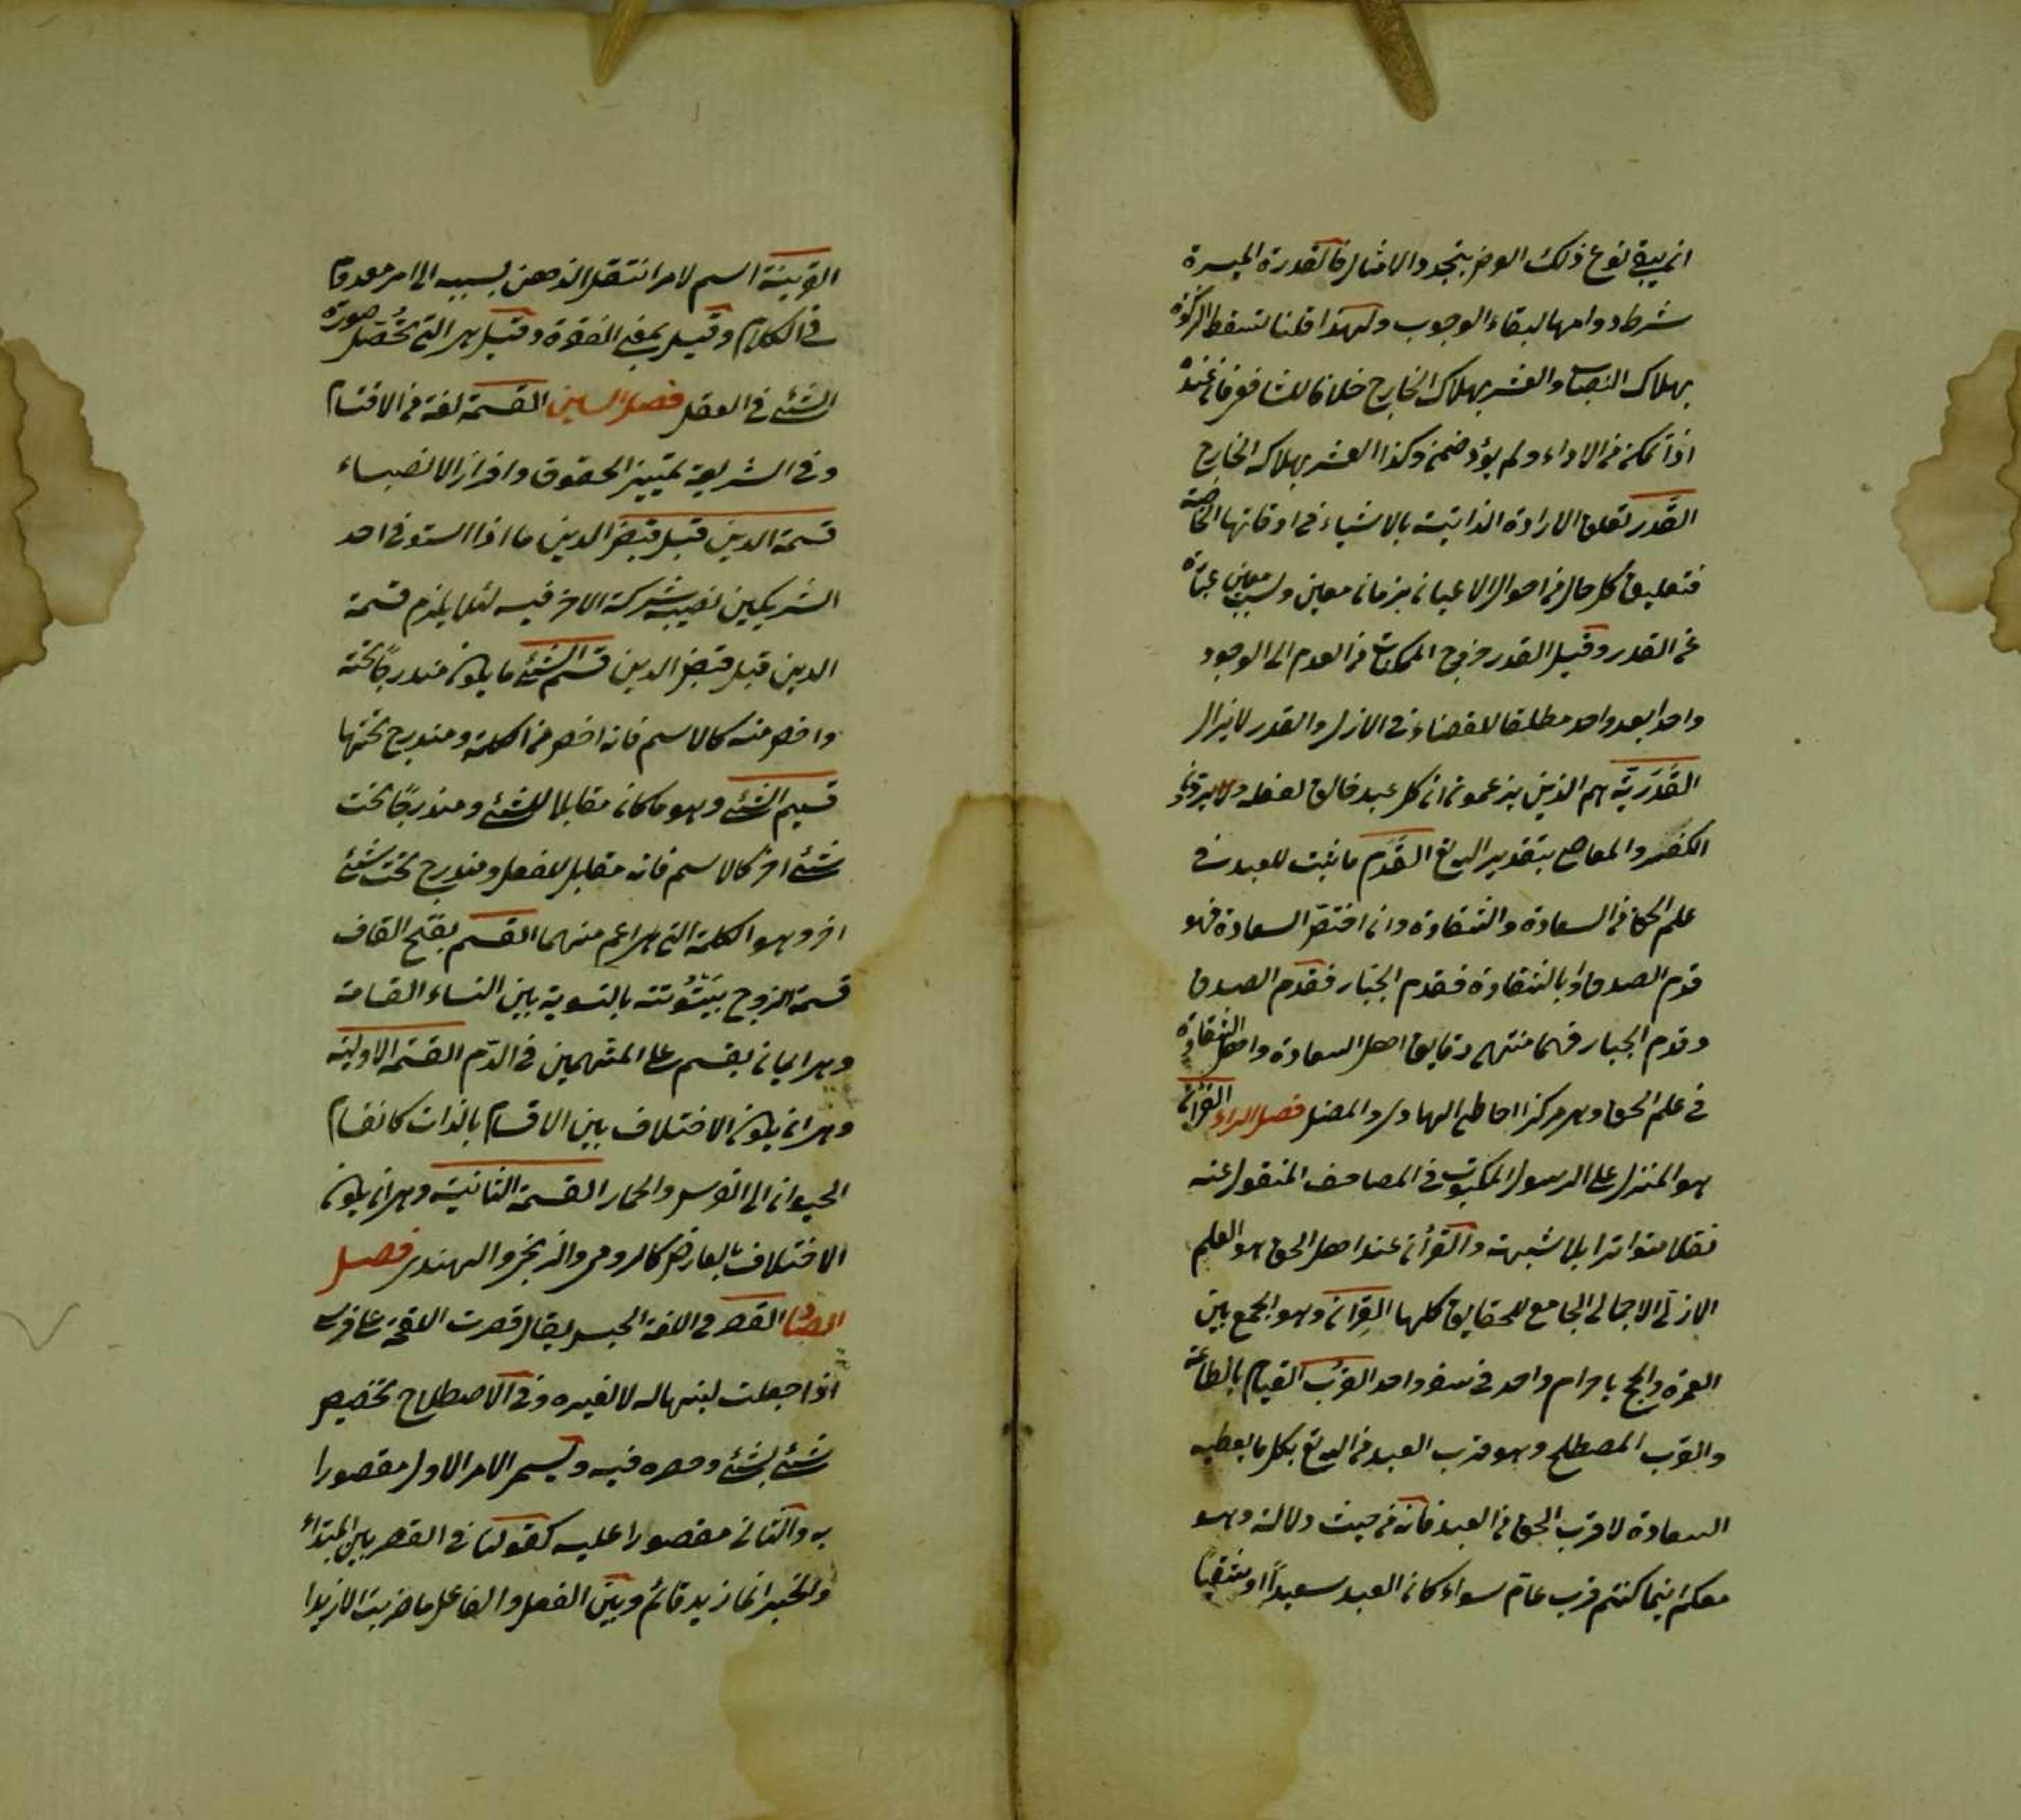 انه يبقى نوع ذلك العرض بتجدد الامثال فالقدرة الميسرة
شرط دوامها لبقاء الوجوب ولهذا قلنا تسقط الزكوة
بهلاك النصاب والعشر بهلاك الخارج خلافا للشافعى فان عنده
اذا تمكن من الاداء ولم يؤد ضمن وكذا العشر بهلاكه الخارج
القدر تعلق الارادة الذاتية بالاشياء فى اوقاتها الخاصة
فتعليق كل حال من احوال الاعيان بزمان معين وسبب معين عبارة
عن القدر وقيل القدر خروج الممكنات من العدم الى الوجود
واحدا بعد واحد مطلقا للقضاء فى الازل والقدر لا يزال
القَدَريّة هم الذين يزعمون ان كل عبد خالق لفعله ولا يرون
الكفر والمعاصى بتقدير الله تع القَدَم ما ثبت للعبد فى
علم الحق من السعادة والشقاوة وان اختص السعادة فهو
قدم الصدق او بالشقاوة فقدم الجبار فقدم الصدق
وقدم الجبار فهما منتهى دقايق اهل السعادة واهل الشقاوة
فى علم الحق وهى مركز احاطى الهادى والمضل فصل الراء القرآن
هو المنزل على الرسول المكتوب فى المصاحف المنقول عنه
نقلا متواترا بلا شبهة والقرأن عند اهل الحق هو العلم
الازلى الاجمالى الجامع للحقايق كلها القِران وهو الجمع بين
العمرة والحج باحرام واحد فى سفر واحد القرب القيام بالطاعة
والقرب المصطلح وهو قرب العبد من الله تع بكل ما يعطيه
السعادة لا قرب الحق من العبد فانه من حيث دلالة وهو
معكم اينما كنتم قرب عام سواء كان العبد سعيداً او شقياً
القرينة اسم لامر انتقل الذهن بسببه الى امر معدوم
فى الكلام وقيل بمعنى الفقرة وقيل هى التى تُحصّل صورة
الشئ فى العقل فصل السين القسمة لغة من الاقتسام
وفى الشريعة تمييز الحقوق وافراز الانصباء
قسمة الدين قبل قبض الدين ما اذا استوفى احد
الشريكين نصيبه شركه الاخر فيه لئلا يلزم قسمة
الدين قبل قبض الدين قسم الشئ ما يكون مندرجاً تحته
واخص منه كالاسم فانه اخص من الكلمة ومندرج تحتها
قسيم الشئ وهو ما كان مقابلا للشئ ومندرجاً تحت
شئ اخر كالاسم فانه مقابل للفعل ومندرج تحت شئ
اخر وهو الكلمة التى هى اعم منهما القسم بفتح القاف
قسمة الزوج بيتوتته بالتسوية بين النساء القسامة
وهى ايمان يقسم على المتهمين فى الدّم القسمة الاولية
وهى ان يكون الاختلاف بين الاقسام بالذات كانقسام
الحيوان الى الفرس والحمار القسمة الثانية وهى ان يكون
الاختلاف بالعارض كالرومى والزنجى والهندى فصل
الصاد القصر فى اللغة الحبس يقال قصرت اللقحة على فرسى
اذا جعلت لبنها له لا لغيره وفى الاصطلاح تخصيص
شئ بشئ وحصره فيه ويسمى الامر الاول مقصورا
به والثانى مقصورا عليه كقولنا فى القصر بين المبتداء
والخبر انما زيد قائم وبين الفعل والفاعل ما ضربت الا زيدا